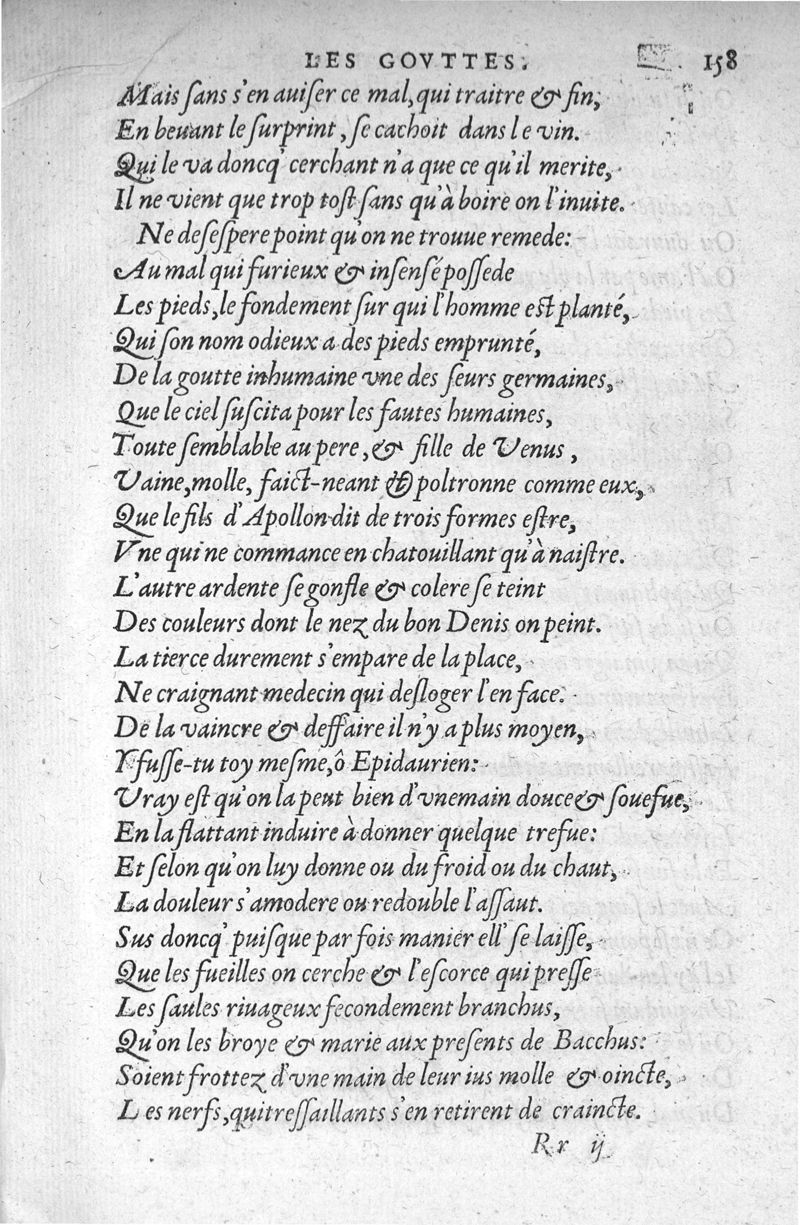 LES GOVTTES. 158
Mais ſans s'en auiſer ce mal, qui traitre & fin,
En beuant le ſurprint, ſe cachoit dans le vin.
Qui le va doncq' cerchant n'a que ce qu'il merite,
Il ne vient que trop toſt ſans qu'à boire on l'inuite.
Ne deſeſpere point qu'on ne trouue remede:
Au mal qui furieux & inſenſé poſſede
Les pieds, le fondement ſur qui l'homme eſt planté,
Qui ſon nom odieux a des pieds emprunté,
De la goutte inhumaine vne des ſeurs germaines,
Que le ciel ſuſcita pour les fautes humaines,
Toute ſemblable au pere, & fille de Venus,
Vaine, molle, faict-neant & poltronne comme eux,
Que le fils d'Apollon dit de trois formes eſtre,
Vne qui ne commance en chatouillant qu'à naiſtre.
L'autre ardente ſe gonfle & colere ſe teint
Des couleurs dont le nez du bon Denis on peint.
La tierce durement s'empare de la place,
Ne craignant medecin qui deſloger l'en face.
De la vaincre & deffaire il n'y a plus moyen,
Y fuſſe-tu toy meſme, ô Epidaurien:
Vray eſt qu'on la peut bien d'vne main douce & ſouefue,
En la flattant induire à donner quelque trefue:
Et ſelon qu'on luy donne ou du froid ou du chaut,
La douleur s'amodere ou redouble l'aſſaut.
Sus doncq' puiſque par fois manier ell' ſe laiſſe,
Que les fueilles on cerche & l'eſcorce qui preſſe
Les ſaules riuageux fecondement branchus,
Qu'on les broye & marie aux preſents de Bacchus:
Soient frottez d'vne main de leur ius molle & oincte,
Les nerfs, qui treſſaillants s'en retirent de craincte.
Rr ij